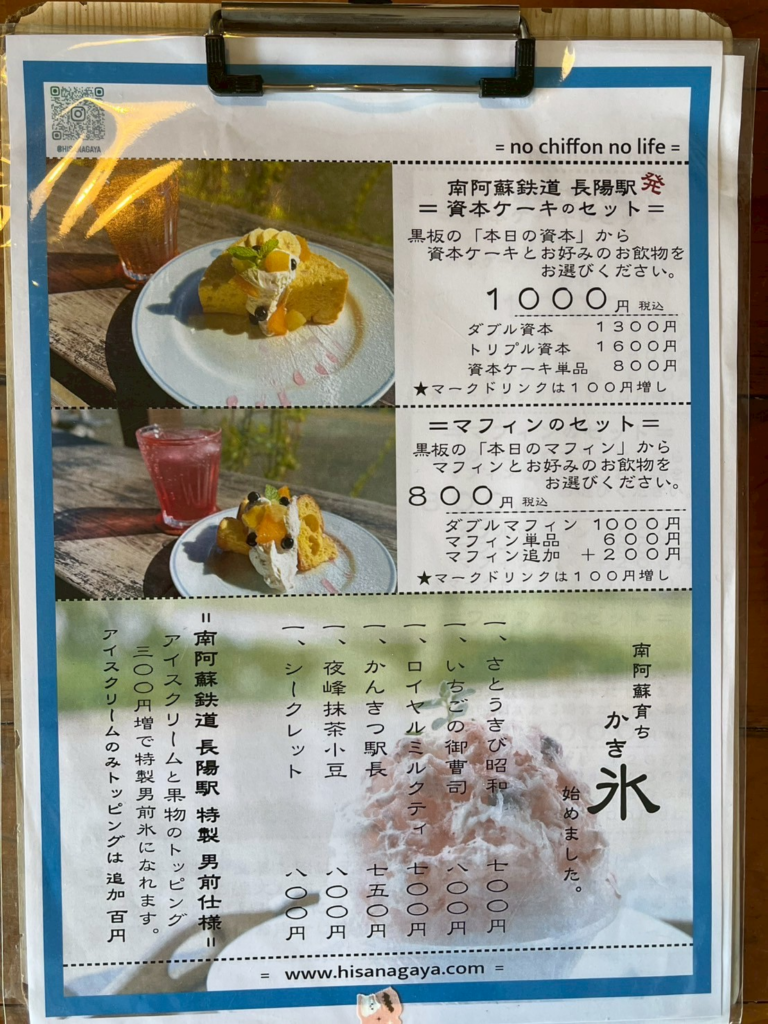 @HISANAGAYA
= no chiffon no life =
南阿蘇鉄道 長陽駅 発
＝ 資本ケーキのセット ＝
黒板の「本日の資本」から
資本ケーキとお好みのお飲物を
お選びください。
１０００円 税込
ダブル資本 １３００円
トリプル資本 １６００円
資本ケーキ単品 ８００円
★マークドリンクは１００円増し
＝マフィンのセット＝
黒板の「本日のマフィン」から
マフィンとお好みのお飲物を
お選びください。
８００円 税込
ダブルマフィン １０００円
マフィン単品 ６００円
マフィン追加 ＋２００円
★マークドリンクは１００円増し
南阿蘇育ち
かき氷
始めました。
一、さとうきび昭和 七〇〇円
一、いちごの御曹司 八〇〇円
一、ロイヤルミルクティ 七〇〇円
一、かんきつ駅長 七五〇円
一、夜峰抹茶小豆 八〇〇円
一、シークレット 八〇〇円
＝南阿蘇鉄道 長陽駅 特製 男前仕様＝
アイスクリームと果物のトッピング
三〇〇円増で特製男前氷になれます。
アイスクリームのみトッピングは 追加 百円
= www.hisanagaya.com =